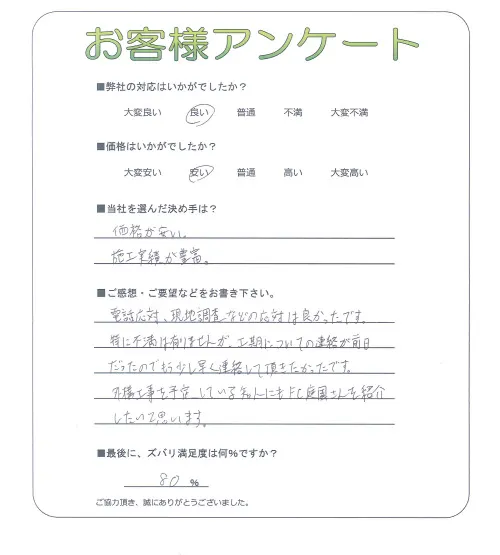 お客様アンケート
■弊社の対応はいかがでしたか？
大変良い 良い 普通 不満 大変不満
■価格はいかがでしたか？
大変安い 安い 普通 高い 大変高い
■当社を選んだ決め手は？
価格が安い。
施工実績が豊富。
■ご感想・ご要望などをお書き下さい。
電話応対、現地調査などの応対は良かったです。
特に不満は有りませんが、工期についての連絡が前日
だったのでもう少し早く連絡して頂きたかったです。
外構工事を予定している知人にもFC庭園さんを紹介
したいと思います。
■最後に、ズバリ満足度は何％ですか？
80 %
ご協力頂き、誠にありがとうございました。